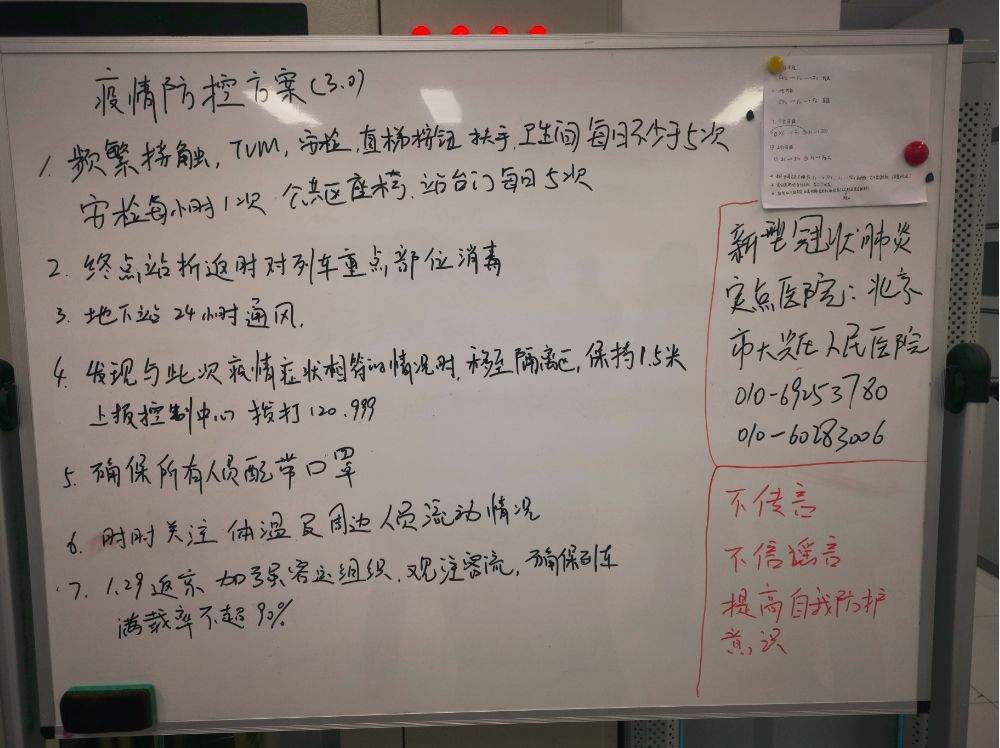 疫情防控方案(3.0)
1. 频繁接触, TVM, 安检, 直梯按钮 扶手, 卫生间 每日不少于5次
安检每小时1次 公共区座椅, 站台门每日5次
2. 终点站折返时对列车重点部位消毒
3. 地下站24小时通风.
4. 发现与此次疫情症状相等的情况时, 移至隔离区, 保持1.5米
上报控制中心 拨打120.999
5. 确保所有人员配带口罩
6. 时时关注体温及周边人员流动情况
7. 1.29返京 加强客运组织, 观注客流, 确保列车
满载率不超90%
新型冠状肺炎
定点医院: 北京
市大兴区人民医院
010-69253780
010-60283006
不传言
不信谣言
提高自我防护
意识